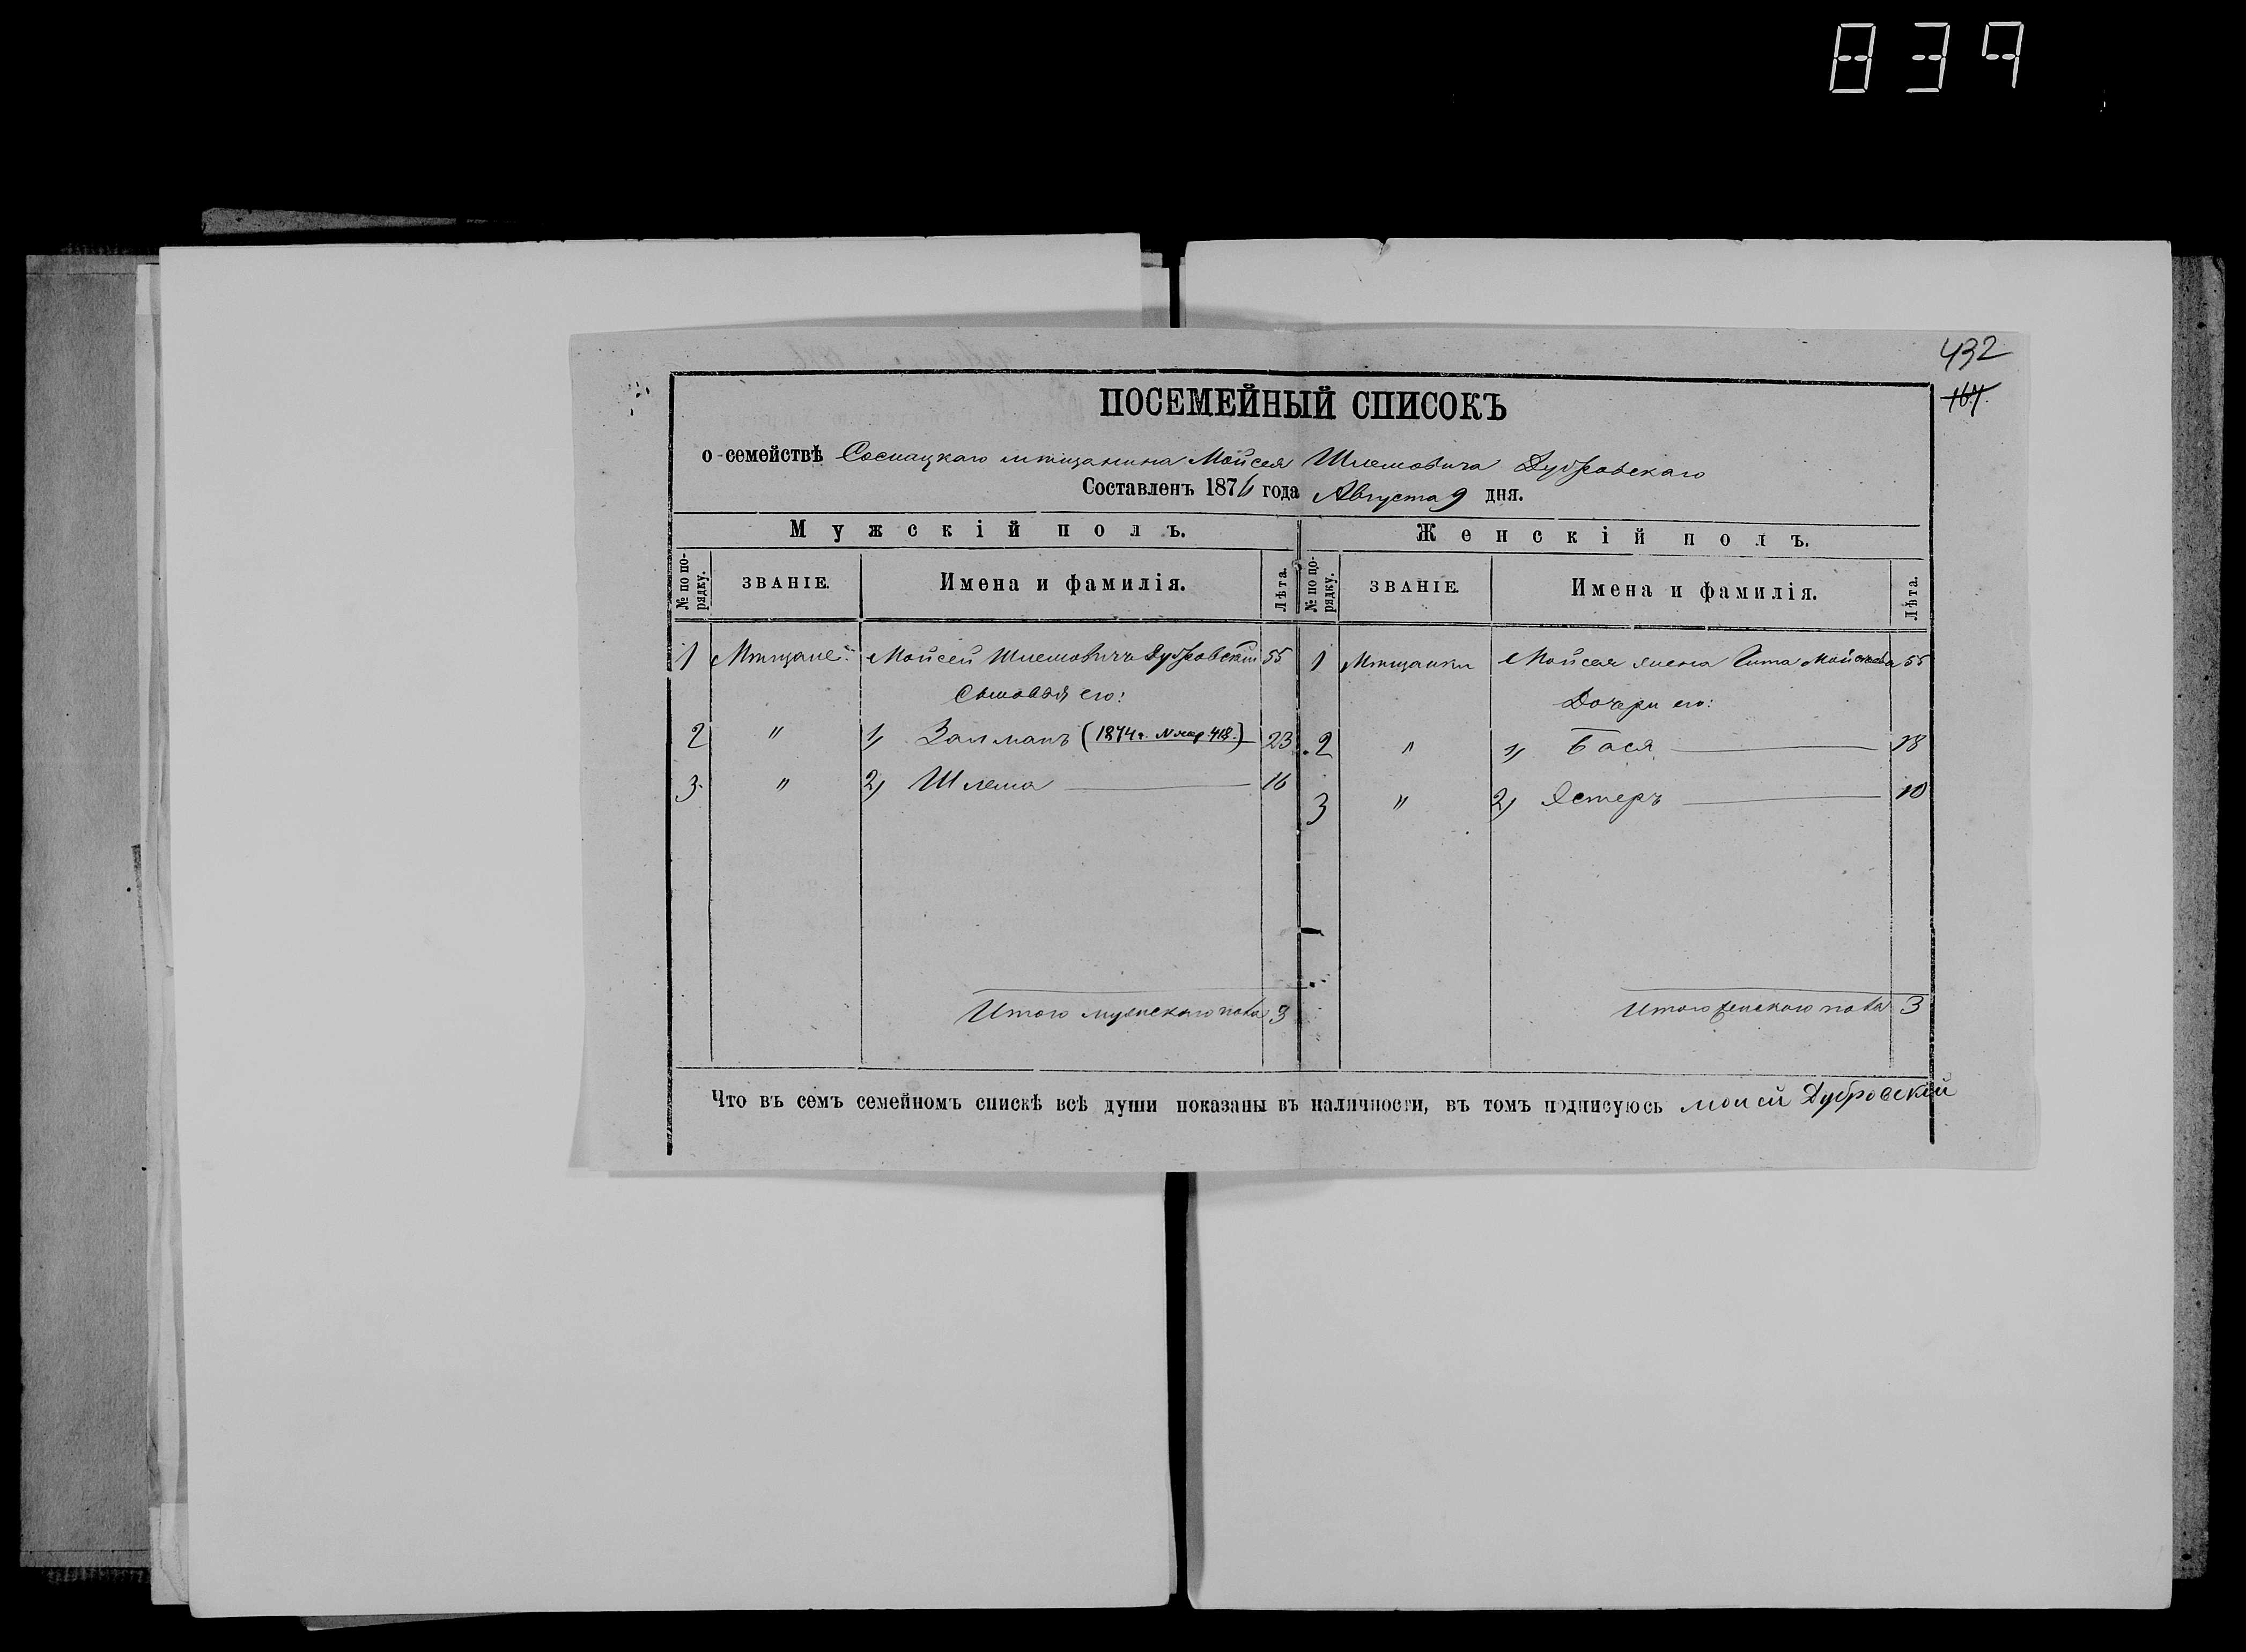 839
432
164.
ПОСЕМЕЙНЫЙ СПИСОКЪ
о семействѣ Сосницкаго мѣщанина Мойсея Шлемовича Дубровскаго
Составленъ 1876 года Августа 9 дня.
Мужскій полъ. Женскій полъ.
№ по порядку. ЗВАНІЕ. Имена и фамилія. Лѣта. № по порядку. ЗВАНІЕ. Имена и фамилія. Лѣта.
1 Мѣщане: Мойсей Шлемовичъ Дубровскій 55 1 Мѣщанки Мойсея жена Гита Мойсеева 55
Сыновья его: Дочери его:
2 " 1, Залманъ (1874 г. № жер. 418.) 23 2 " 1, Бася 18
3 " 2, Шлема 16 3 " 2, Эстеръ 10
Итого мужскаго пола 3 Итого женскаго пола 3
Что въ семъ семейномъ спискѣ всѣ души показаны въ наличности, въ томъ подписуюсь Моисей Дубровскій